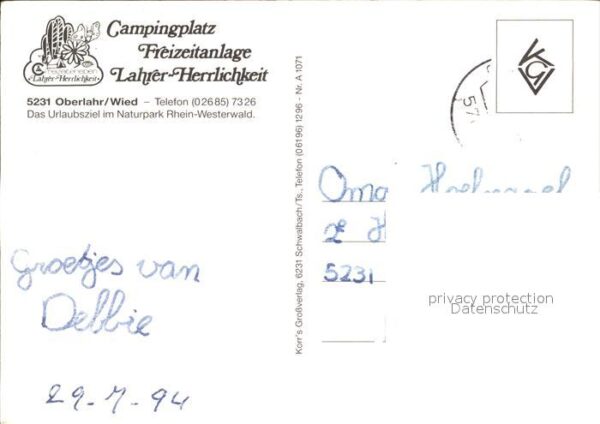 Campingplatz
Freizeitanlage
Lahrer-Herrlichkeit
Lahrer-Herrlichkeit
5231 Oberlahr/Wied – Telefon (02685) 7326
Das Urlaubsziel im Naturpark Rhein-Westerwald.
Groetjes van
Debbie
29-7-94
Korr's Großverlag, 6231 Schwalbach/Ts., Telefon (06196) 1296 - Nr. A 1071
KGV
57
Oma
5231
privacy protection
Datenschutz